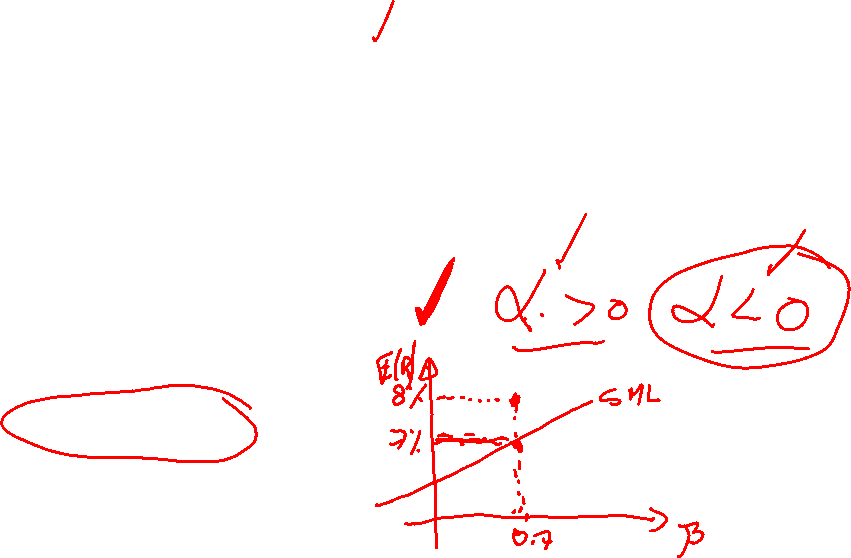 α > 0 α < 0
E(R)
8%
SML
7%
0.7 β